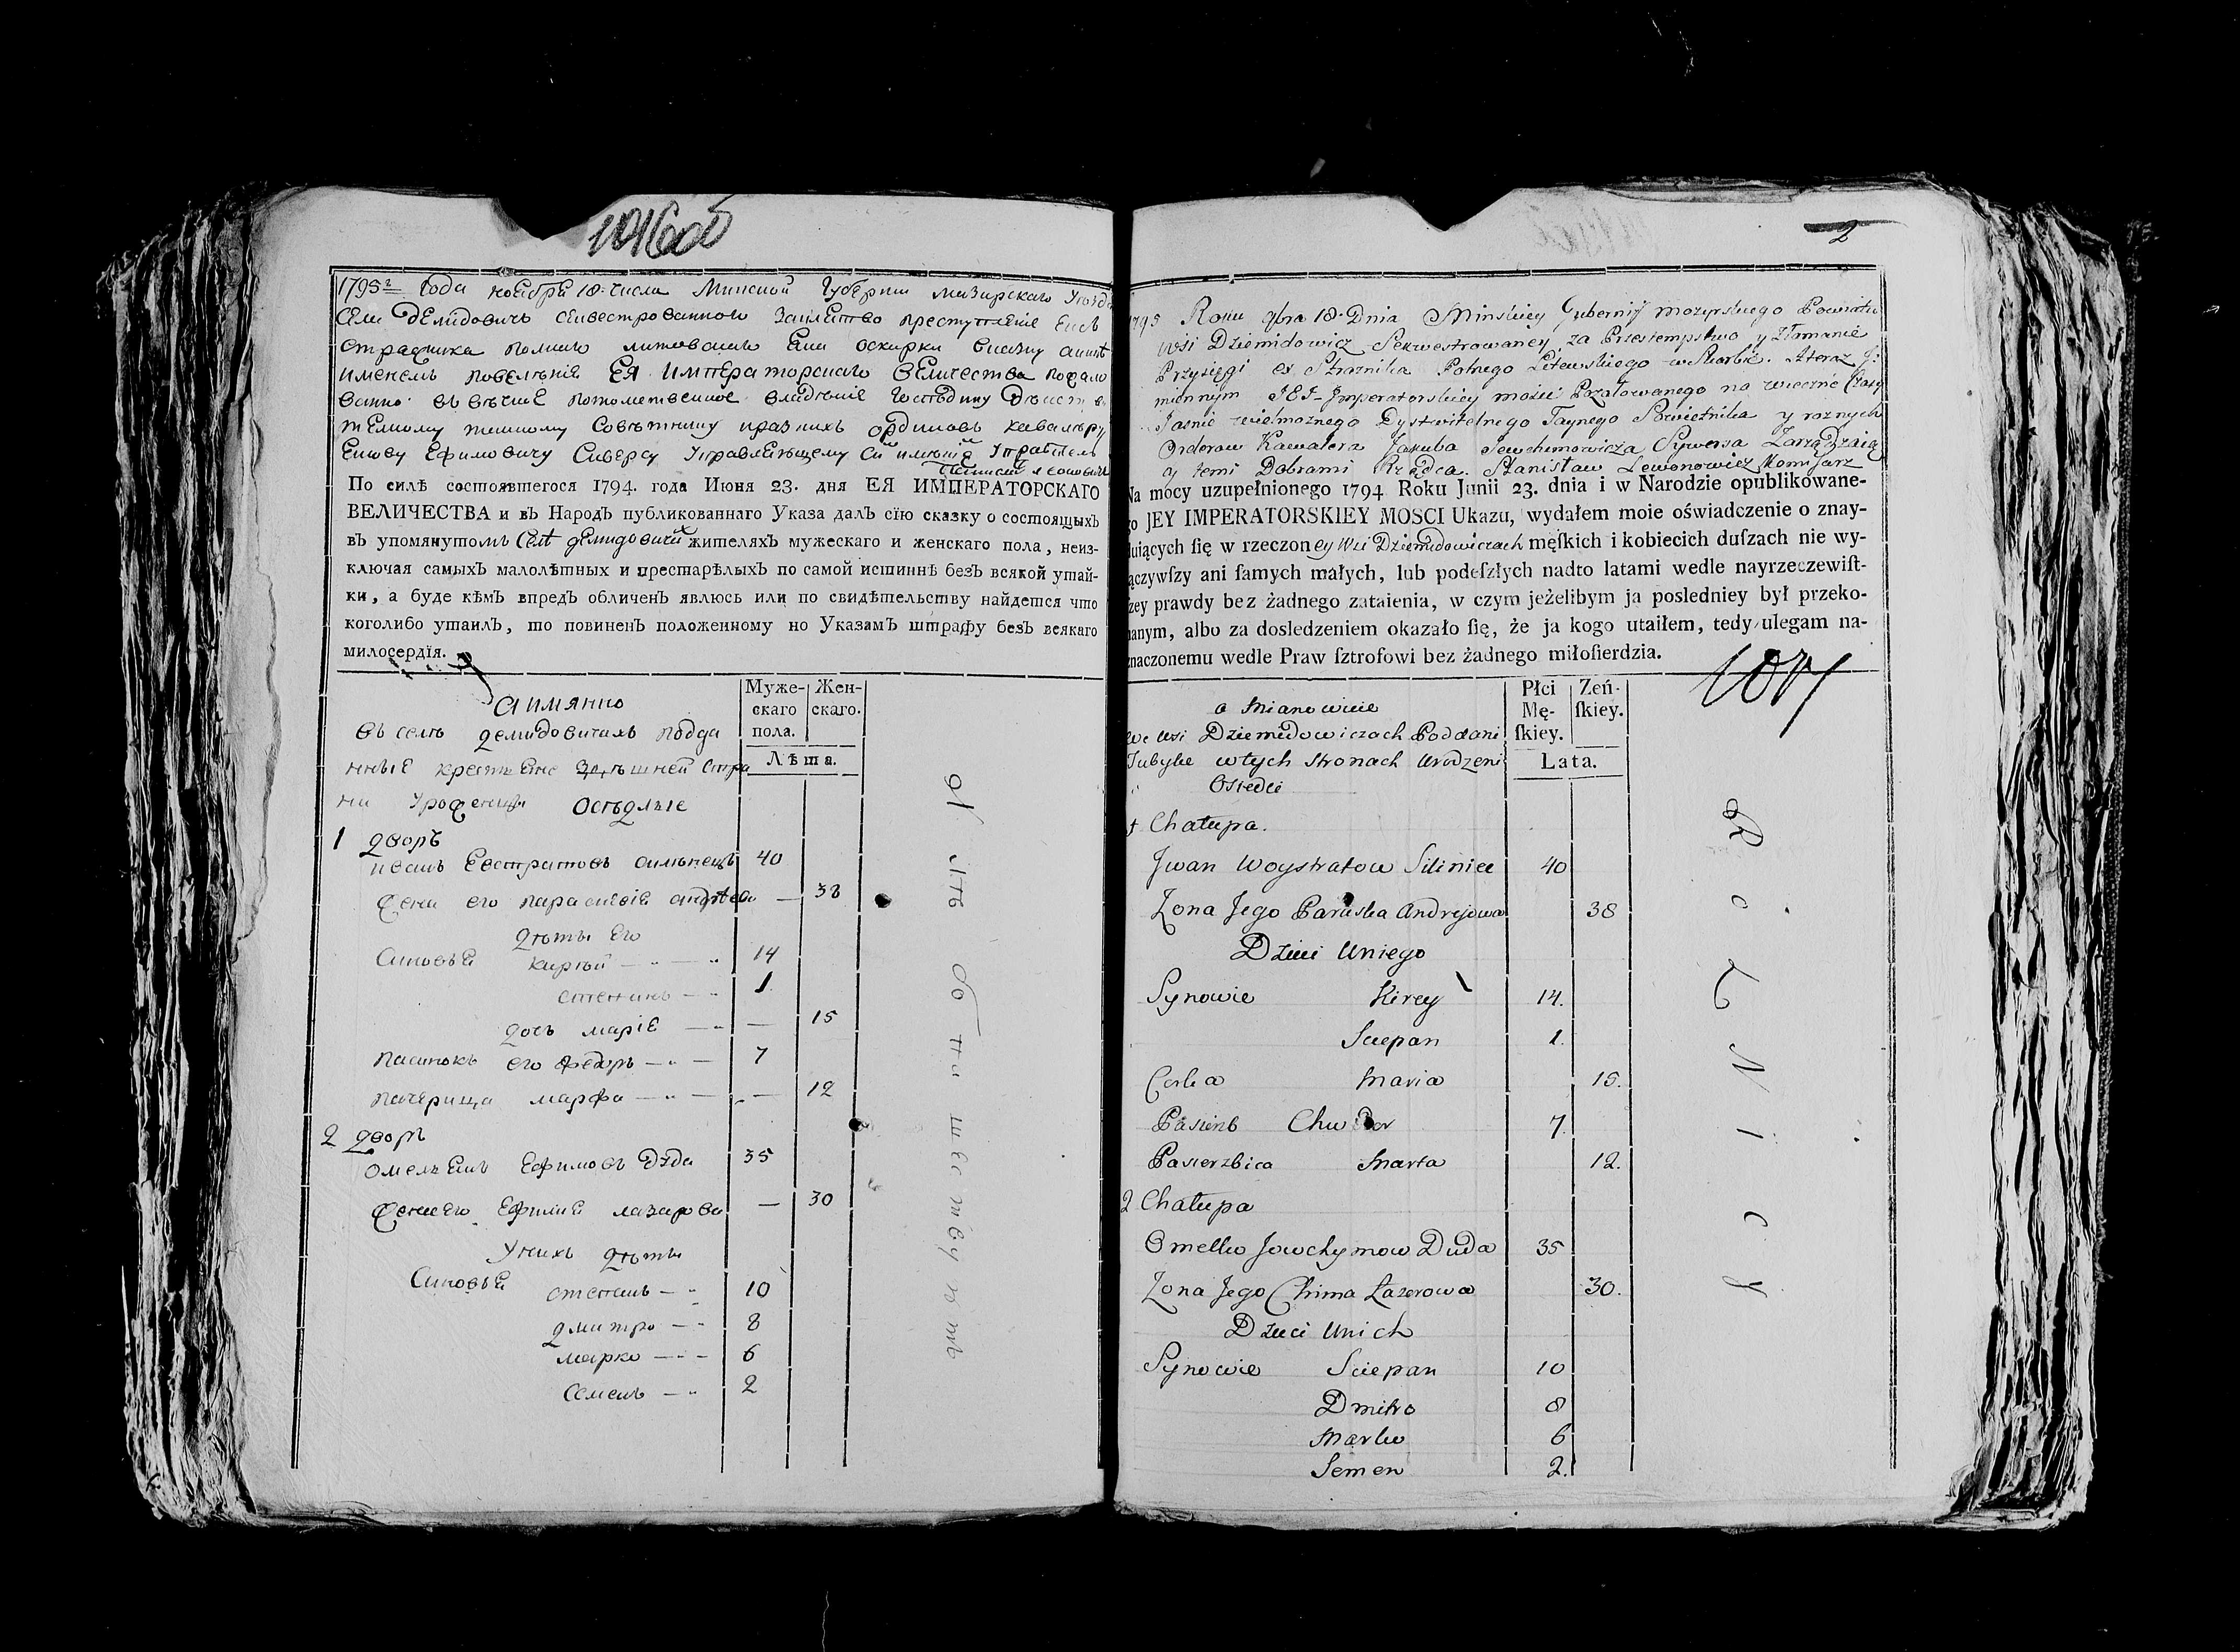 1016об
1795г года ноября 18 числа Минской Губернии мазирскаго уезда
Села демидовичъ секвестрованного за клятво преступление бывъ
стражника полнаго литовскаго Яна оскирки в казну а ныне
именемъ повелѣния ЕЯ Императорскаго Величества пожало
ванно въ вѣчное потомственное владѣние господину Действ
телному тайному Совѣтнику и разныхъ ординовъ кавалеру
Якову Ефимовичу Сиверсу управляющему сей имения управитель
По силѣ состоявшегося 1794. года Июня 23. дня ЕЯ ИМПЕРАТОРСКАГО
ВЕЛИЧЕСТВА и въ Народъ публикованнаго Указа далъ сїю сказку о состоящыхъ
въ упомянутомъ селе демидовичи жителяхъ мужескаго и женскаго пола, неиз-
ключая самыхъ малолѣтныхъ и престарѣлыхъ по самой истиннѣ безъ всякой утай-
ки, а буде кѣмъ впредъ обличенъ явлюсь или по свидѣтельству найдется что
коголибо утаилъ, то повиненъ положенному по Указамъ штрафу безъ всякаго
милосердїя.
Муже-скаго пола.
Жен-скаго.
Лѣта.
а имянно
въ селе демидовичахъ подда
нные крестьяне здѣшней стра
ни уроженци оседлые
1 дворъ
иванъ Евстратовъ силинецъ 40
жена его парасковия андреева — 38
дѣты его
Синовья кирей 14
степанъ 1
дочъ мария — 15
пасинокъ его федоръ 7
пачерица марфа — 12
2 дворъ
омельянъ Ефимовъ Дуда 35
жена его Ефимия лазарова — 30
У нихъ дѣты
Синовья степанъ 10
дмитро 8
марко 6
семенъ 2
2
1795 Roku 9bra 18 Dnia Minskiey Gubernij mozyrskiego Powiatu
wsi Dziemidowicz Sekwestrowaney za Przestempstwo y Złamanie
Przysięgi ex Straznika Polnego Litewskiego w Skarbie. A teraz J:
miennym JEJ Jmperatorskiey mości Pozałowanego na wieczne Czasy
Jasnie wielmoznego Dystwitelnego Taynego Sowietnika y roznych
Orderow Kawalera Jakuba Jewchimowicza Sywersa Zarządzaią
cy temi Dobrami Rządca. Stanisław Lewonowicz Komisarz
Na mocy uzupełnionego 1794 Roku Junii 23. dnia i w Narodzie opublikowane-
go JEY IMPERATORSKIEY MOSCI Ukazu, wydałem moie oświadczenie o znay-
duiących ſię w rzeczoney Wsi Dziemidowiczach męſkich i kobiecich duſzach nie wy-
łączywſzy ani ſamych małych, lub podeſzłych nadto latami wedle nayrzeczewiſt-
szey prawdy bez żadnego zataienia, w czym jeżelibym ja posledniey był przeko-
nanym, albo za dosledzeniem okazało ſię, że ja kogo utaiłem, tedy ulegam na-
znaczonemu wedle Praw ſztrofowi bez żadnego miłoſierdzia.
Płci Mę-ſkiey.
Zeń-ſkiey.
Lata.
a mianowicie
we wsi Dziemidowiczach Poddani
Tubylce w tych stronach Urodzeni
Osiedli
1 Chałupa.
Jwan Woystratow Siliniec 40
Zona Jego Paraska Andrejowa 38
Dzieci Uniego
Synowie Kirey 14.
Sciepan 1.
Corka Maria 15.
Pasinb Chwedor 7.
Pasierzbica Marta 12.
2 Chałupa
Omelko Jowchymow Duda 35
Zona Jego Chima Łazarowa 30.
Dzieci Unich
Synowie Sciepan 10
Dmitro 8
Marko 6
Semen 2.